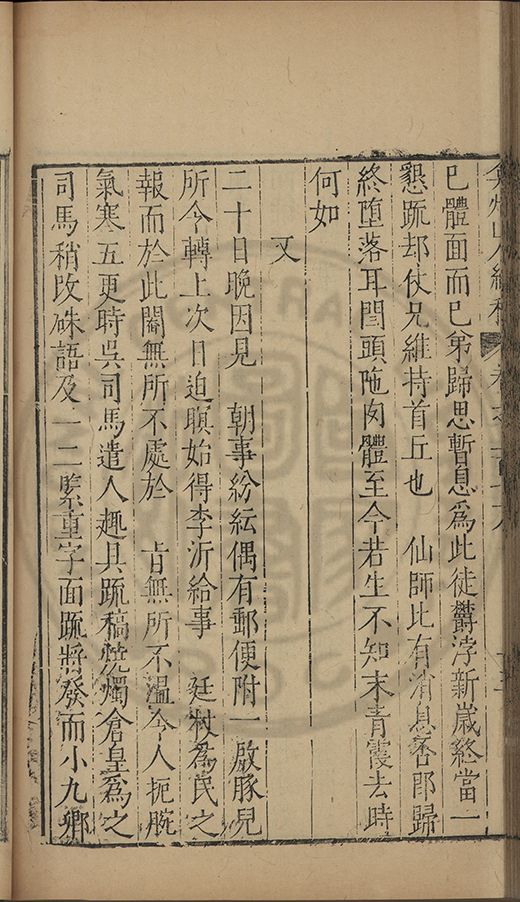 弇州山人續稿 卷之一百七十八
巳體面而巳弟歸思暫息爲此徒欝浡新嵗終當一
懇疏却仗兄維持首丘也　仙師比有消息否郎歸
終墮落耳閏頭陁肉體至今若生不知末青霞去時
何如
又
二十日晚因見　朝事紛紜偶有郵便附一啟豚兒
所今轉上次日迫暝始得李沂給事　廷杖爲民之
報而於此闇無所不處於　旨無所不溫令人扼腕
氣寒五更時吳司馬遣人趣具疏稿燒燭倉皇爲之
司馬稍改硃語及一二緊重字面疏將發而小九卿